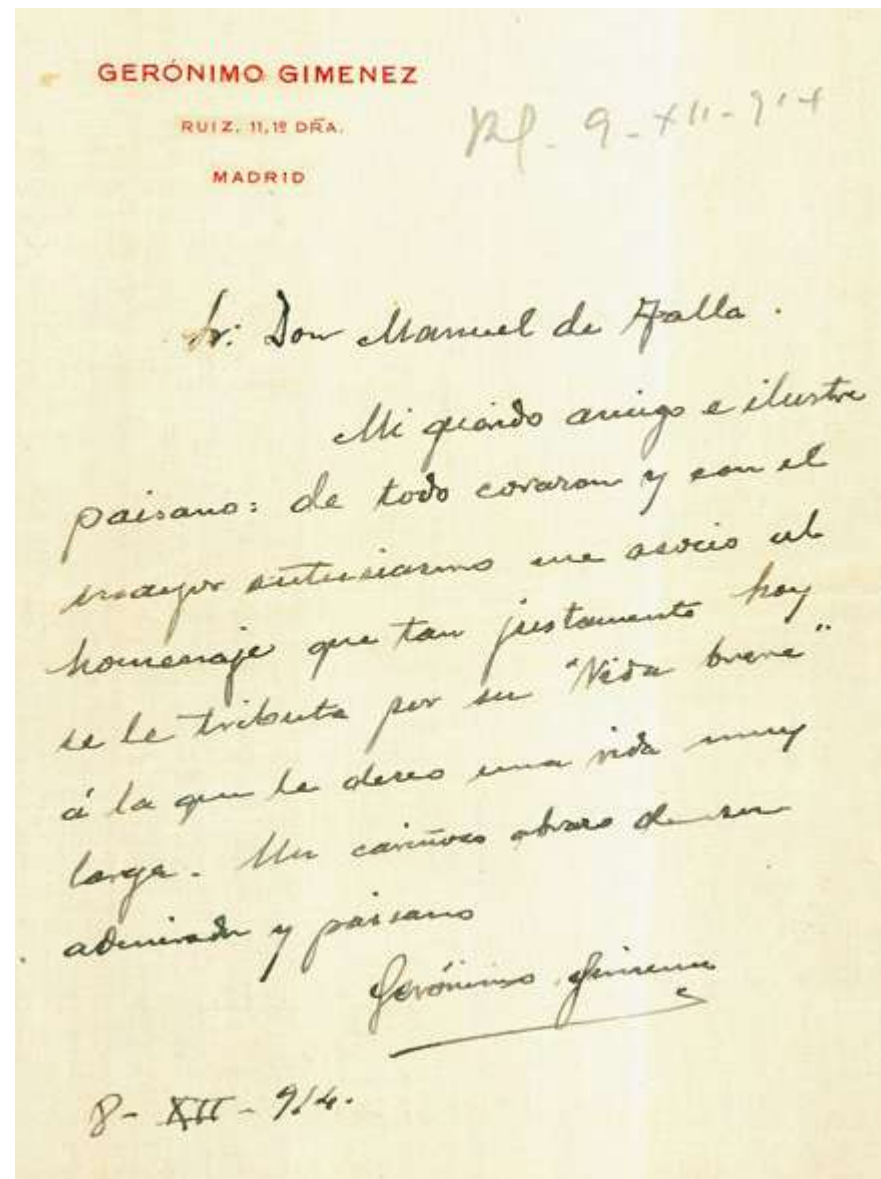 GERÓNIMO GIMENEZ
RUIZ. 11, 1º DRA.
MADRID
9-XII-914
Sr: Don Manuel de Falla.
Mi querido amigo e ilustre
paisano: de todo corazon y con el
mayor entusiasmo me asocio al
homenaje que tan justamente hoy
se le tributa por su "Vida breve"
á la que le deseo una vida muy
larga. Un cariñoso abrazo de su
admirador y paisano
Gerónimo Gimenez
8-XII-914.